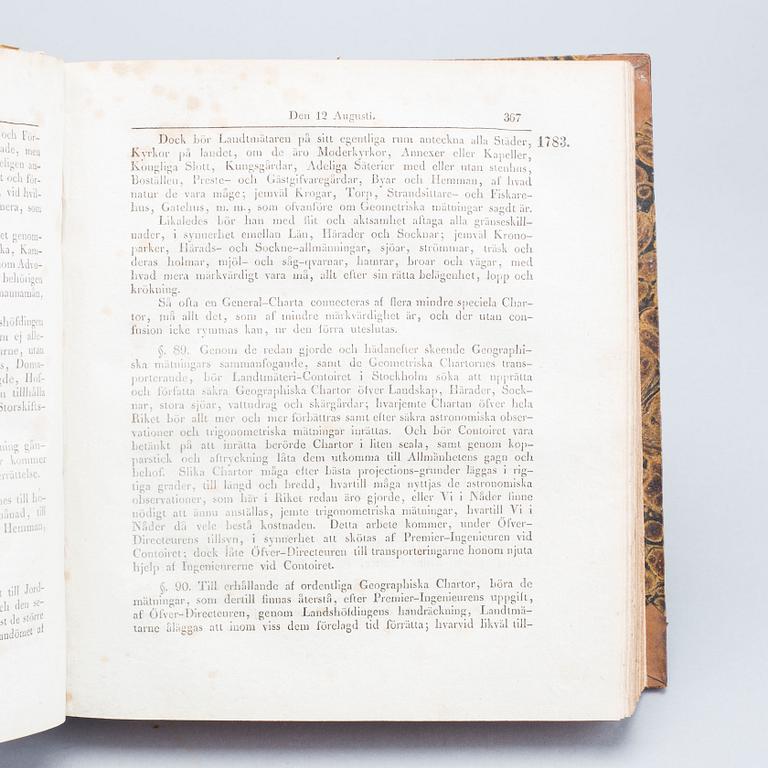 och För-
ade, men
eligen an-
t och för-
vid hvil-
nera, som
et genom-
ka, Kam-
nom Advo-
behörigen
mannamån,
shöfdingen
m ej alle-
arne, utan
s, Doma-
gde, Hof-
n tillhålla
Storskifts-
ning gån-
r kommer
errättelse.
nes till ho-
månad, till
Hemman,
t till Jord-
ch den se-
st de större
andömet af
Den 12 Augusti. 367
1783.
Dock bör Landtmätaren på sitt egentliga rum anteckna alla Städer,
Kyrkor på landet, om de äro Moderkyrkor, Annexer eller Kapeller,
Kongliga Slott, Kungsgårdar, Adeliga Säterier med eller utan stenhus,
Boställen, Preste- och Gästgifvaregårdar, Byar och Hemman, af hvad
natur de vara måge; jemväl Krogar, Torp, Strandsittare- och Fiskare-
hus, Gatehus, m. m., som ofvanföre om Geometriska mätningar sagdt är.
Likaledes bör han med flit och aktsamhet aftaga alla gränseskill-
nader, i synnerhet emellan Län, Härader och Socknar; jemväl Krono-
parker, Härads- och Sockne-allmänningar, sjöar, strömmar, träsk och
deras holmar, mjöl- och såg-qvarnar, hamrar, broar och vägar, med
hvad mera märkvärdigt vara må, allt efter sin rätta belägenhet, lopp och
krökning.
Så ofta en General-Charta connecteras af flera mindre speciela Char-
tor, må allt det, som af mindre märkvärdighet är, och der utan con-
fusion icke rymmas kan, ur den förra uteslutas.
§. 89. Genom de redan gjorde och hädanefter skeende Geographi-
ska mätningars sammanfogande, samt de Geometriska Chartornes trans-
porterande, bör Landtmäteri-Contoiret i Stockholm söka att upprätta
och författa säkra Geographiska Chartor öfver Landskap, Härader, Sock-
nar, stora sjöar, vattudrag och skärgårdar; hvarjemte Chartan öfver hela
Riket bör allt mer och mer förbättras samt efter säkra astronomiska obser-
vationer och trigonometriska mätningar inrättas. Och bör Contoiret vara
betänkt på att inrätta berörde Chartor i liten scala, samt genom kop-
parstick och aftryckning låta dem utkomma till Allmänhetens gagn och
behof. Slika Chartor måga efter bästa projections-grunder läggas i rig-
tiga grader, till längd och bredd, hvartill måga nyttjas de astronomiska
observationer, som här i Riket redan äro gjorde, eller Vi i Nåder finne
nödigt att ännu anställas, jemte trigonometriska mätningar, hvartill Vi i
Nåder då vele bestå kostnaden. Detta arbete kommer, under Öfver-
Directeurens tillsyn, i synnerhet att skötas af Premier-Ingenieuren vid
Contoiret; dock låte Öfver-Directeuren till transporteringarne honom njuta
hjelp af Ingenieurerne vid Contoiret.
§. 90. Till erhållande af ordentliga Geographiska Chartor, böra de
mätningar, som dertill finnas återstå, efter Premier-Ingenieurens uppgift,
af Öfver-Directeuren, genom Landshöfdingens handräckning, Landtmä-
tarne åläggas att inom viss dem förelagd tid förrätta; hvarvid likväl till-